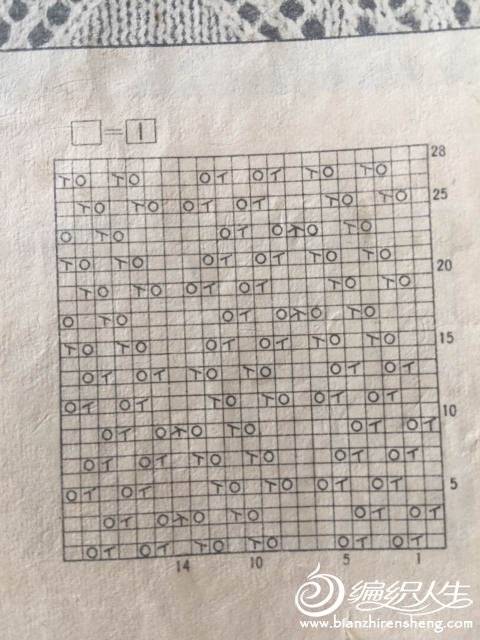 □=I
28
25
20
15
10
5
14 10 5 1
编织人生
www.bianzhirensheng.com